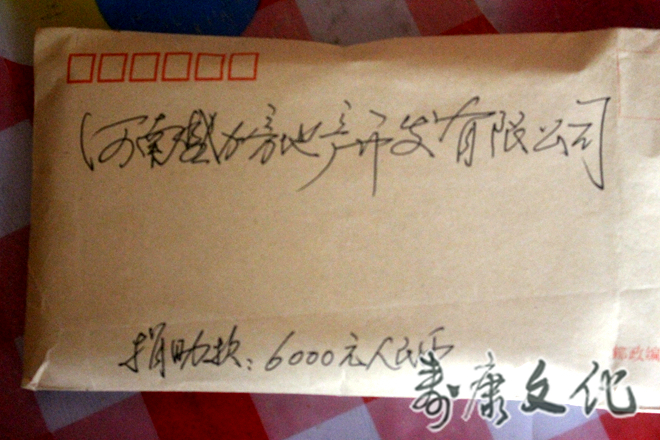 河南盛力房地产开发有限公司
捐助款：6000元人民币
邮政编
寿康文化